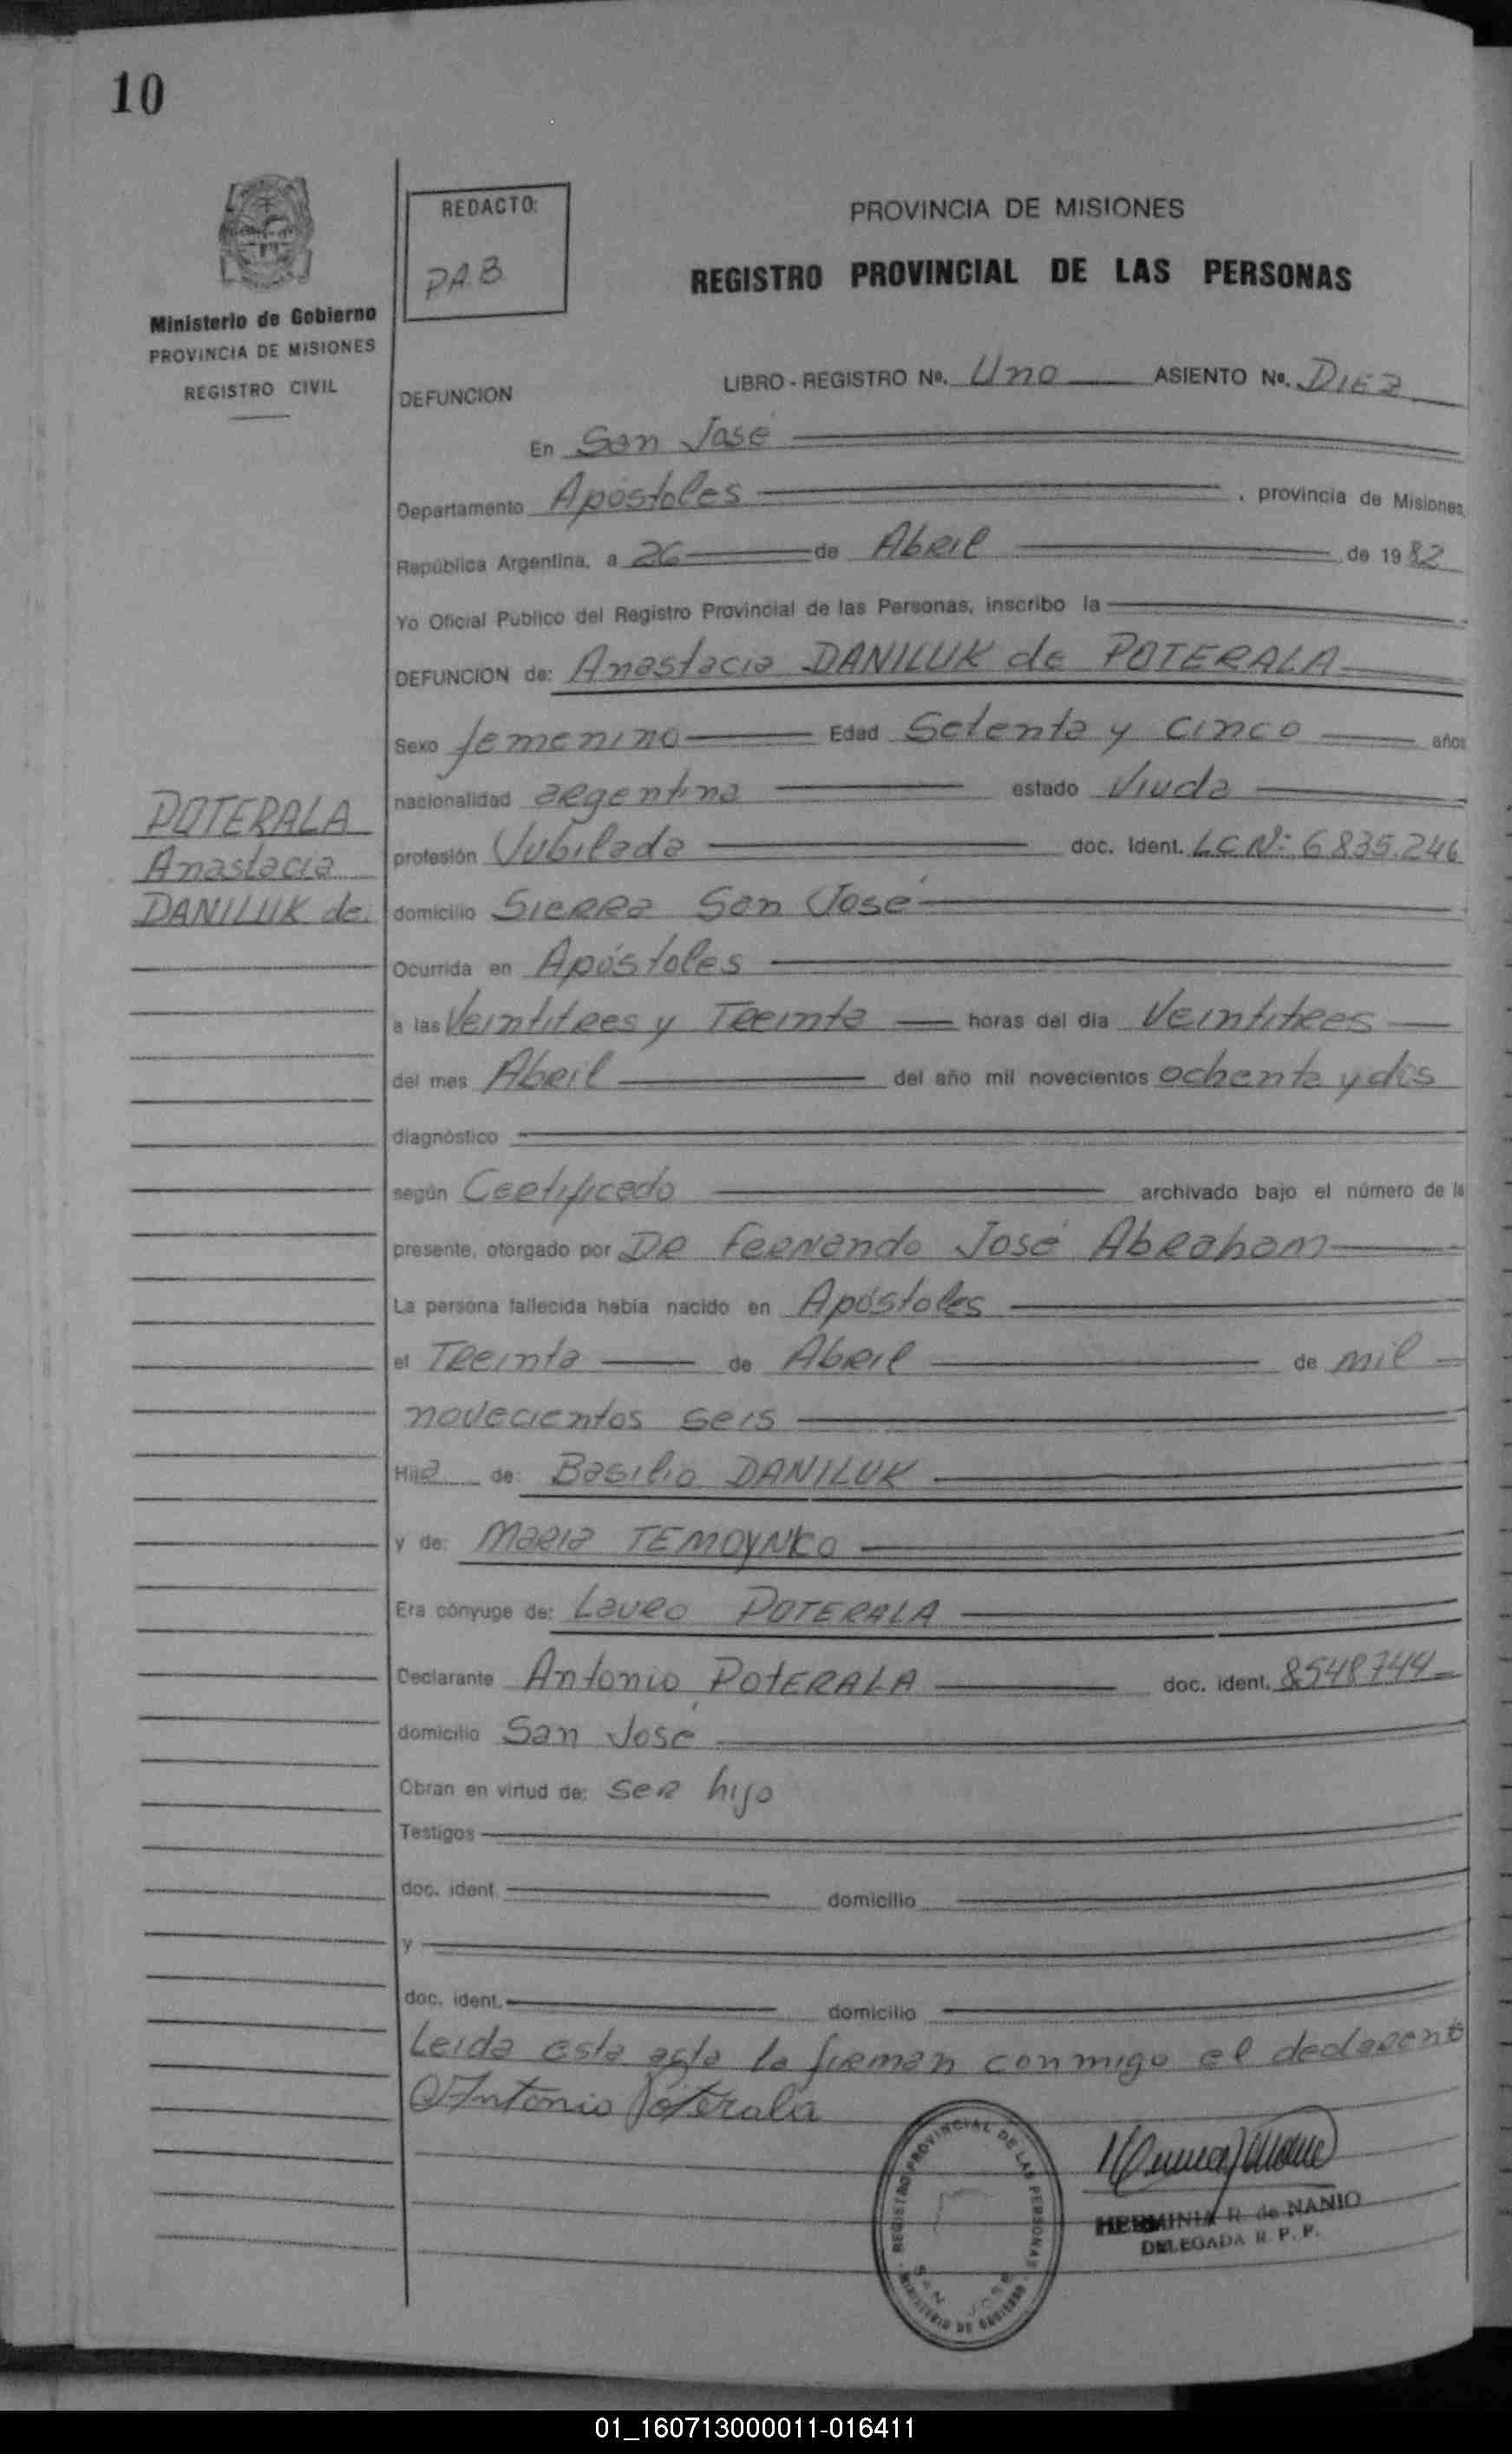 10
REDACTO:
PA.B
PROVINCIA DE MISIONES
REGISTRO PROVINCIAL DE LAS PERSONAS
Ministerio de Gobierno
PROVINCIA DE MISIONES
REGISTRO CIVIL
LIBRO - REGISTRO No. Uno ASIENTO No. DIEZ
DEFUNCION
En San José
Departamento Apóstoles , provincia de Misiones,
República Argentina, a 26 de Abril de 1982
Yo Oficial Público del Registro Provincial de las Personas, inscribo la
DEFUNCION de: Anastacia DANILUK de POTERALA
Sexo femenino Edad Setenta y cinco años
nacionalidad argentina estado Viuda
POTERALA
Anastacia
DANILUK de
profesión Jubilada doc. Ident. L.C.Nº: 6.835.246
domicilio Sierra San José
Ocurrida en Apóstoles
a las Veintitres y Treinta horas del día Veintitres
del mes Abril del año mil novecientos ochenta y dos
diagnóstico
según Certificado archivado bajo el número de la
presente, otorgado por DR Fernando José Abraham
La persona fallecida había nacido en Apóstoles
el Treinta de Abril de mil
novecientos seis
Hija de: Basilio DANILUK
y de: Maria TEMOYNKO
Era cónyuge de: Lauro POTERALA
Declarante Antonio POTERALA doc. ident. 8548744
domicilio San José
Obran en virtud de: ser hijo
Testigos
doc. ident. domicilio
y
doc. ident. domicilio
Leida esta acta la firman conmigo el declarante
Antonio Poterala
REGISTRO PROVINCIAL DE LAS PERSONAS
SAN JOSE
MINISTERIO DE GOBIERNO
HERMINIA R. de NANIO
DELEGADA R. P. P.
01_160713000011-016411